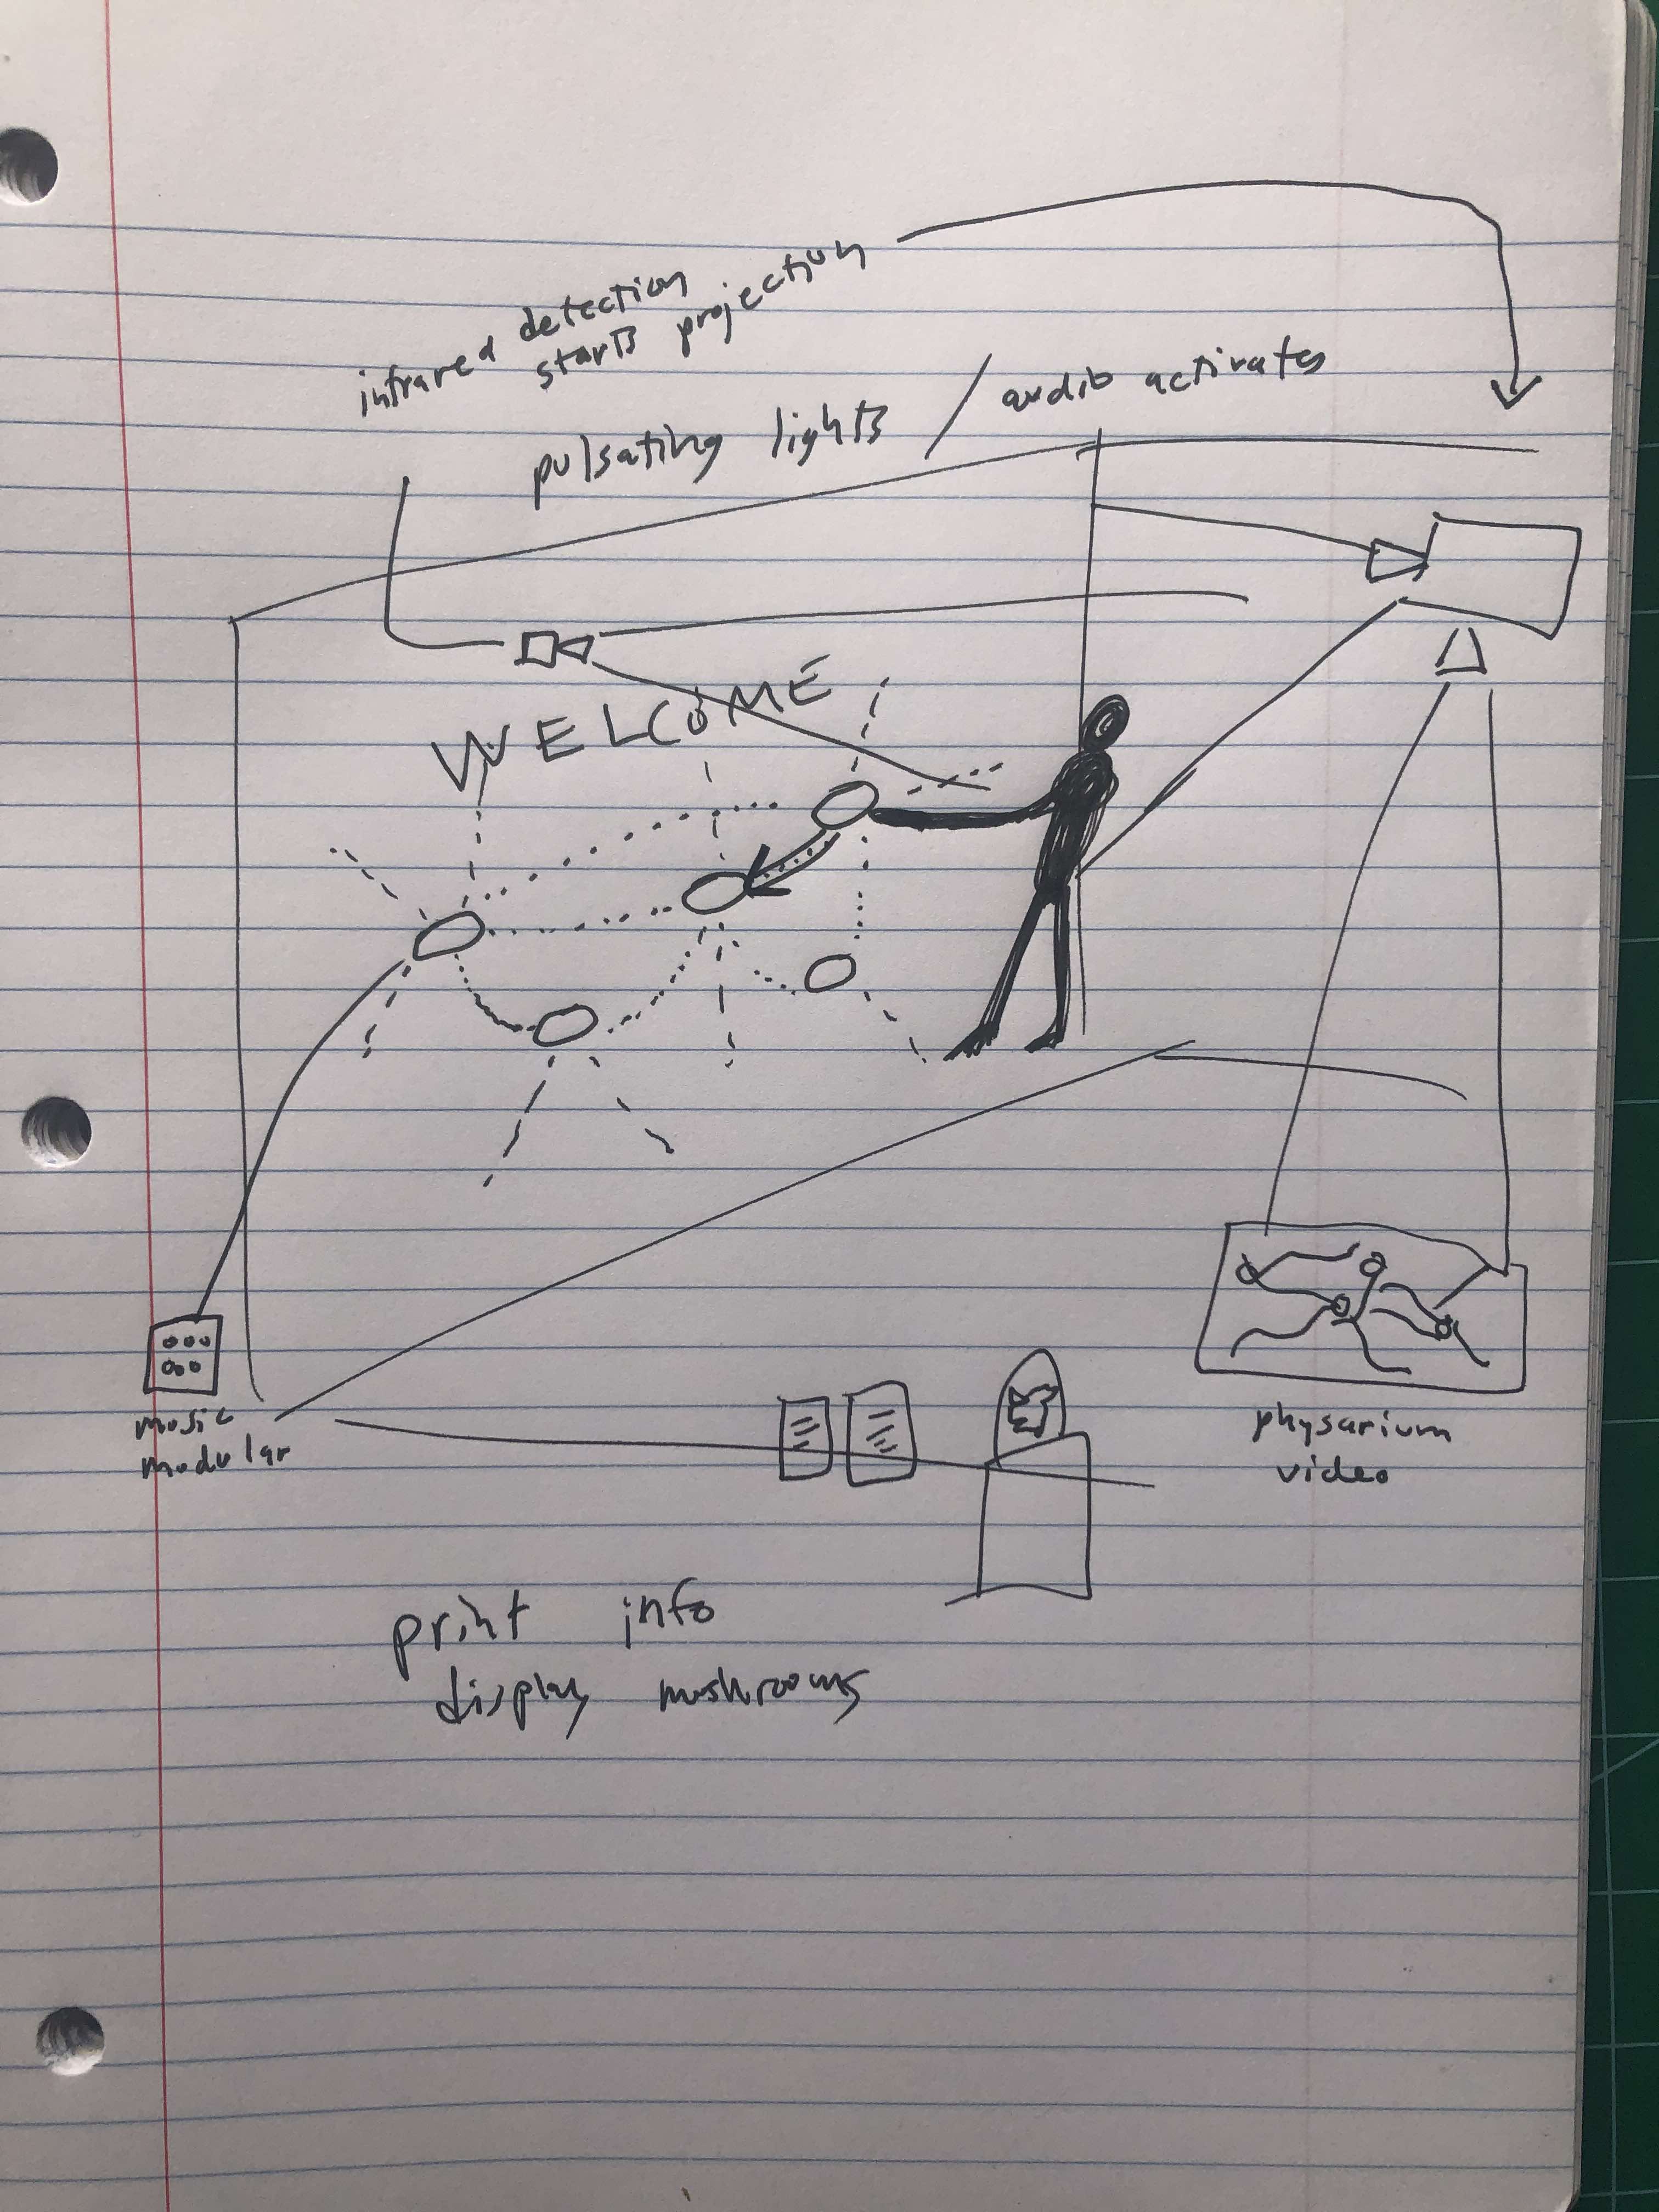 infrared detection
starts projection
pulsating lights / audio activates
WELCOME
music
modular
physarium
video
print info
display mushrooms